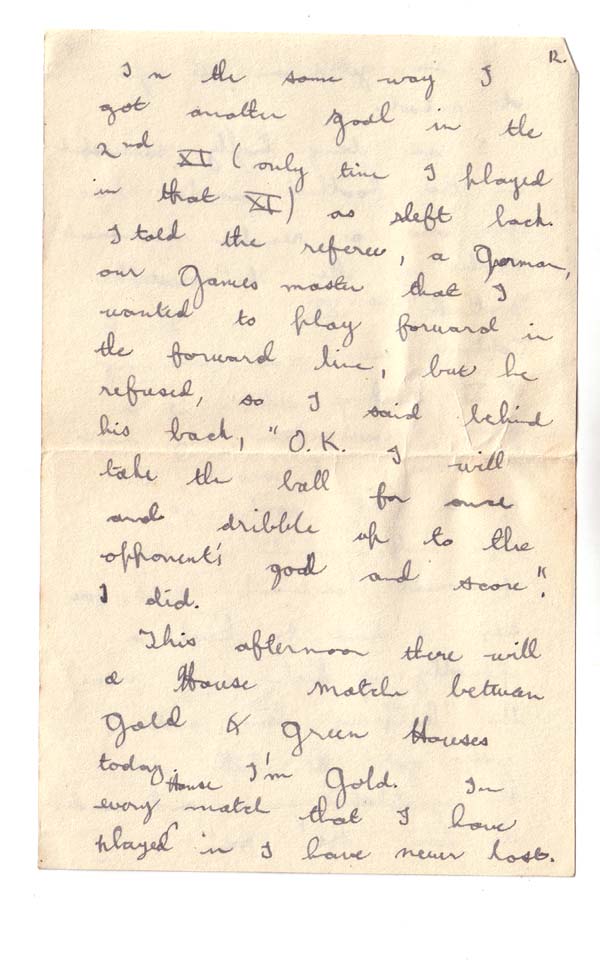 12.
In the same way I
got another goal in the
2nd XI (only time I played
in that XI) as left back.
I told the referee, a German,
our Games master that I
wanted to play forward in
the forward line, but he
refused, so I said behind
his back, "O.K. I will
take the ball for once
and dribble up to the
opponent's goal and score".
I did.
This afternoon there will
a House match between
Gold & Green Houses
today. I'm Gold. In
every House match that I have
played in I have never lost.